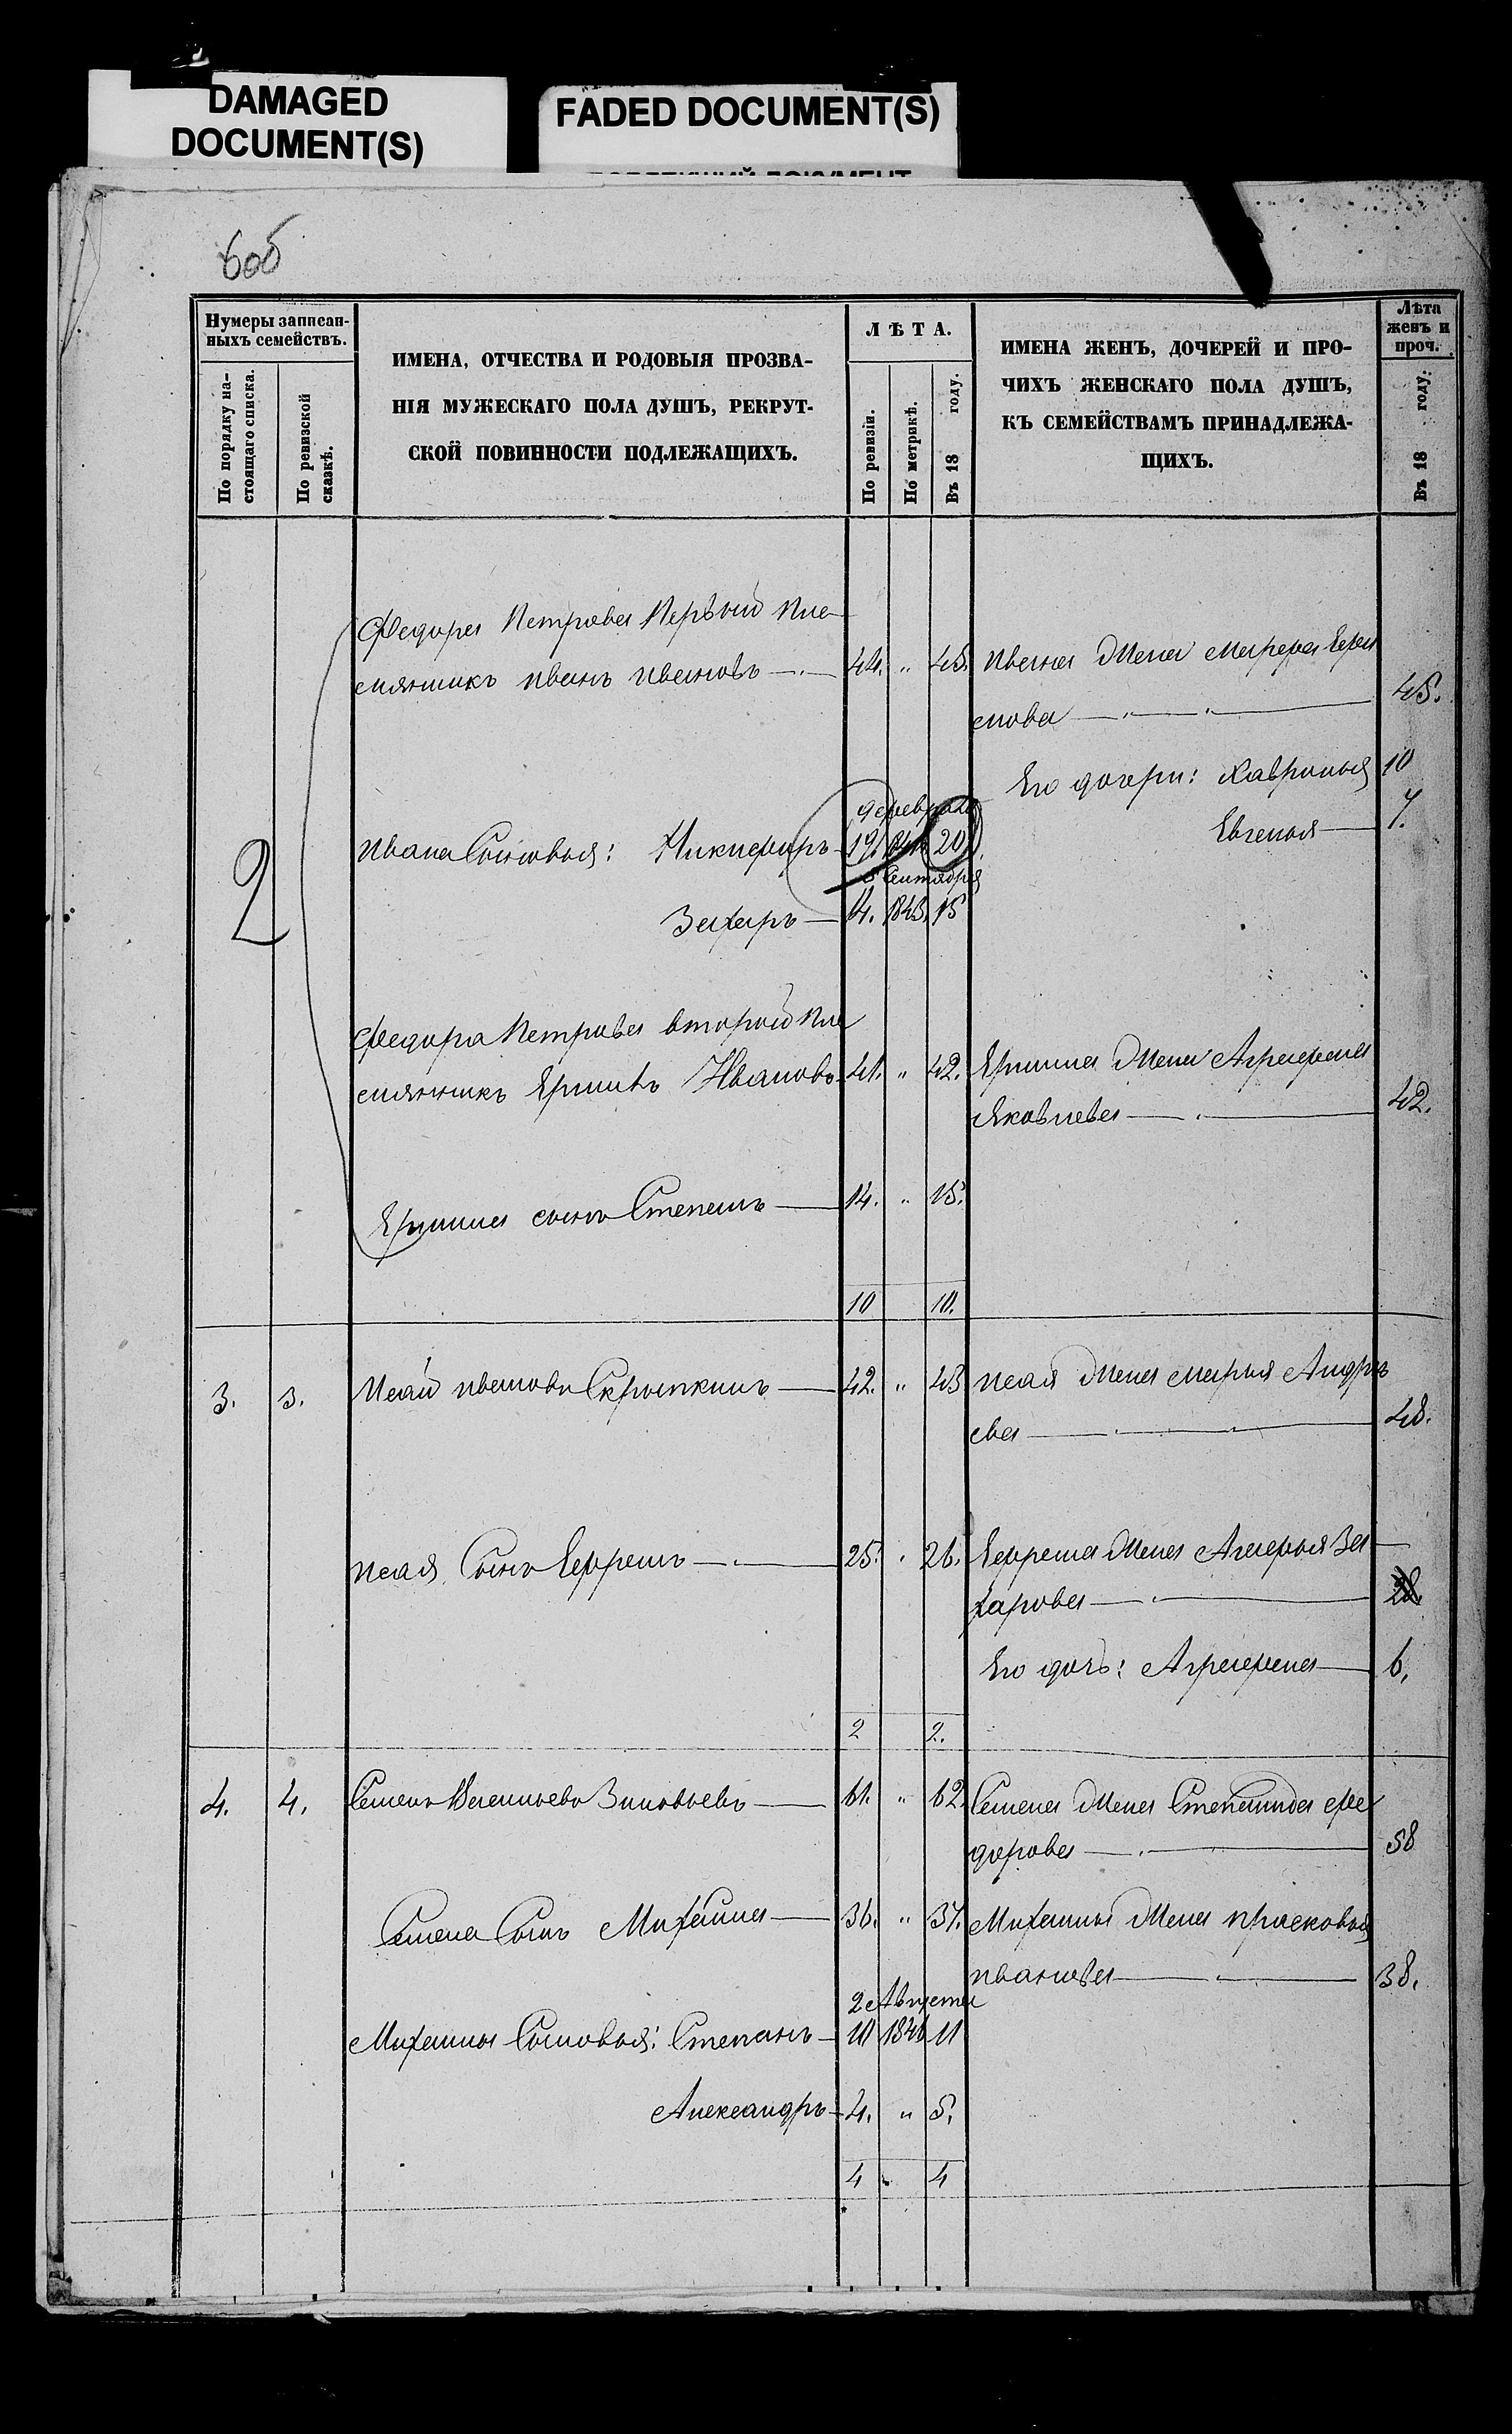 DAMAGED
DOCUMENT(S)
FADED DOCUMENT(S)
6об
Нумеры записан-
ныхъ семействъ.
По порядку на-
стоящаго списка.
По ревизской
сказкѣ.
ИМЕНА, ОТЧЕСТВА И РОДОВЫЯ ПРОЗВА-
НІЯ МУЖЕСКАГО ПОЛА ДУШЪ, РЕКРУТ-
СКОЙ ПОВИННОСТИ ПОДЛЕЖАЩИХЪ.
ЛѢТА.
По ревизіи.
По метрикѣ.
Въ 18 году.
ИМЕНА ЖЕНЪ, ДОЧЕРЕЙ И ПРО-
ЧИХЪ ЖЕНСКАГО ПОЛА ДУШЪ,
КЪ СЕМЕЙСТВАМЪ ПРИНАДЛЕЖА-
ЩИХЪ.
Лѣта
женъ и
проч.
Въ 18 году.
2
Федора Петрова Первый пле
мянникъ иванъ ивановъ 44. " 45.
ивана жена марфа
45.
Его дочери: Хавронья 10
Евгенья 7.
февраля
Ивана Сыновья: Никифоръ 19. 20
Сентября
Захаръ 14. 1843. 15
Федора Петрова второй пле
мянникъ Ермилъ Ивановъ 41. " 42.
Ермила жена Аграфена
Яковлева 42.
Ермила сынъ Степанъ 14. " 15.
10 10.
3. 3. Исай ивановъ Скрыпкинъ 42. " 43
исая жена марья Андрѣ
ева 48.
исая Сынъ Ефремъ 25. " 26.
Ефрема жена Агафья За
харова 28.
Его дочь: Аграфена 6.
2 2.
4. 4. Семенъ Зиновьевъ 61. " 62
Семена жена Степанида Фе
дорова 58
Семена Сынъ Михайла 36. " 37.
Михаилы жена прасковья
иванова 38.
2 Августа
Михаилы Сыновья: Степанъ 10 1846 11
Александръ 4. " 5.
4 4